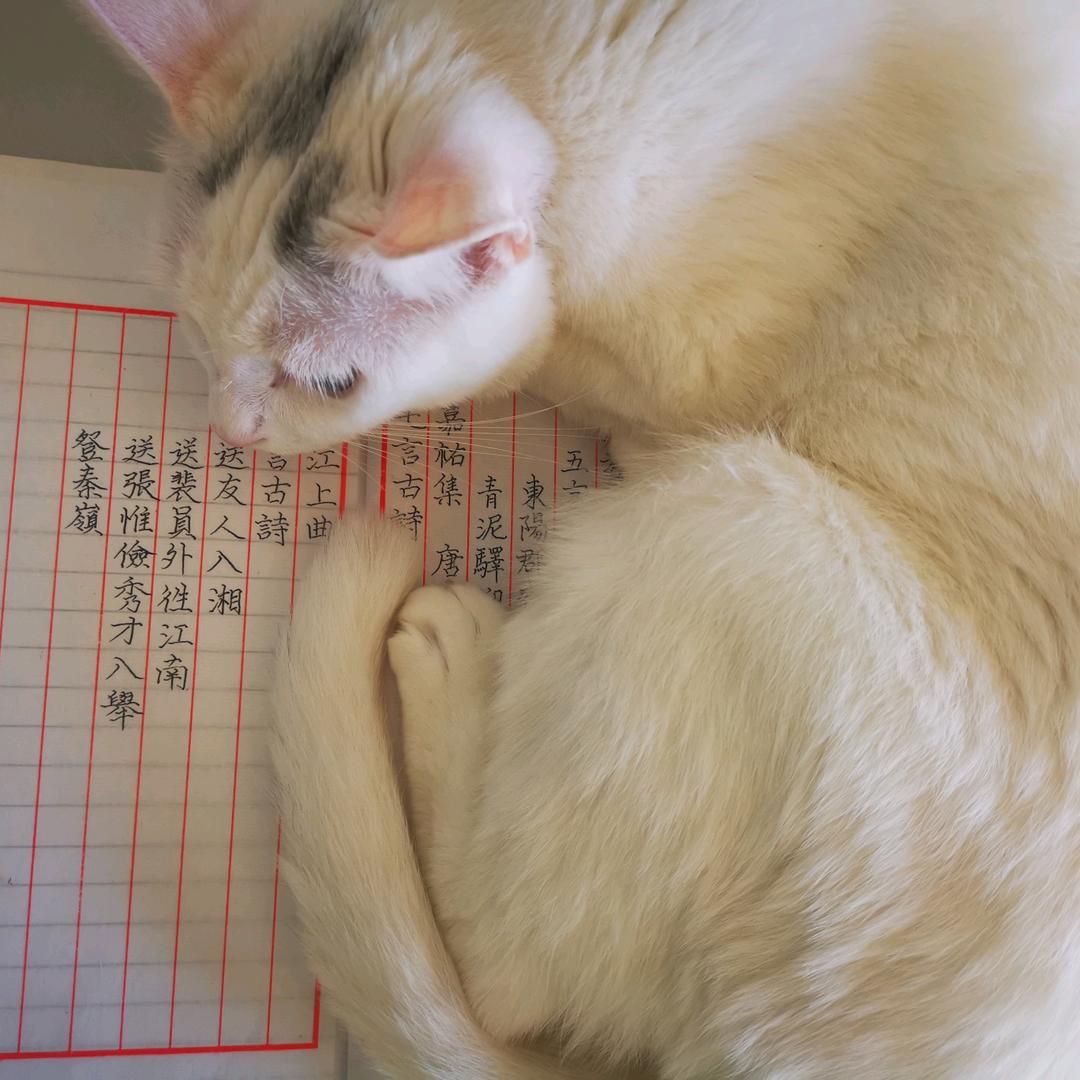 五
東陽郡
青泥驛
嘉祐集 唐
言古詩
江上曲
言古詩
送友人入湘
送裴員外徃江南
送張惟儉秀才入舉
登秦嶺